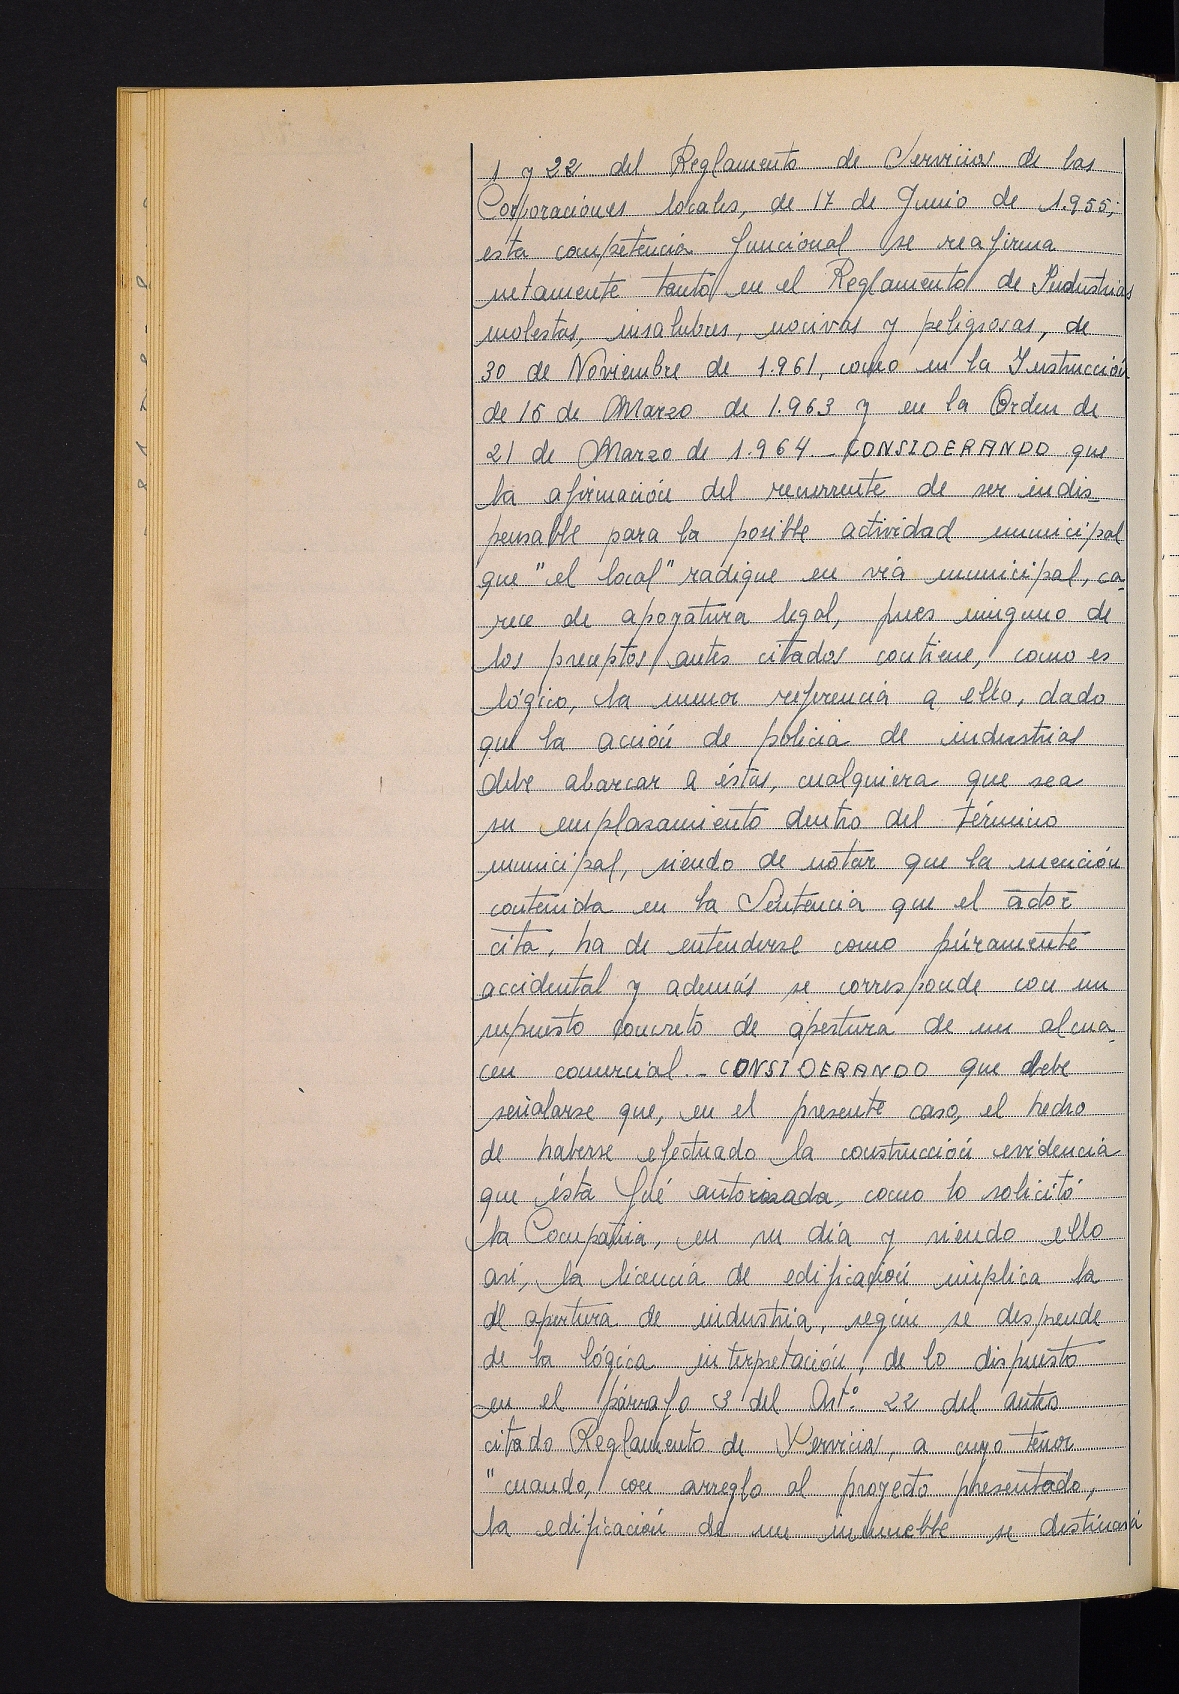 1 y 22 del Reglamento de Servicios de las
Corporaciones locales, de 17 de Junio de 1.955;
esta competencia funcional se reafirma
netamente tanto en el Reglamento de Industrias
molestas, insalubres, nocivas y peligrosas, de
30 de Noviembre de 1.961, como en la Instrucción
de 15 de Marzo de 1.963 y en la Orden de
21 de Marzo de 1.964.- CONSIDERANDO que
la afirmación del recurrente de ser indis-
pensable para la posible actividad municipal
que "el local" radique en vía municipal, ca-
rece de apoyatura legal, pues ninguno de
los preceptos antes citados contiene, como es
lógico, la menor referencia a ello, dado
que la acción de policia de industrias
debe abarcar a éstas, cualquiera que sea
su emplasamiento dentro del término
municipal, siendo de notar que la mención
contenida en la Sentencia que el actor
cita, ha de entenderse como púramente
accidental y además se corresponde con un
supuesto concreto de apertura de un alma-
cen comercial.- CONSIDERANDO que debe
señalarse que, en el presente caso, el hecho
de haberse efectuado la construcción evidencia
que ésta fué autorizada, como lo solicitó
la Compañia, en su día y siendo ello
así, la licencia de edificación implica la
de apertura de industria, según se desprende
de la lógica interpretación, de lo dispuesto
en el párrafo 3 del Art.º 22 del antes
citado Reglamento de Servicios, a cuyo tenor
"cuando, con arreglo al proyecto presentado,
la edificación de un inmueble se destinará